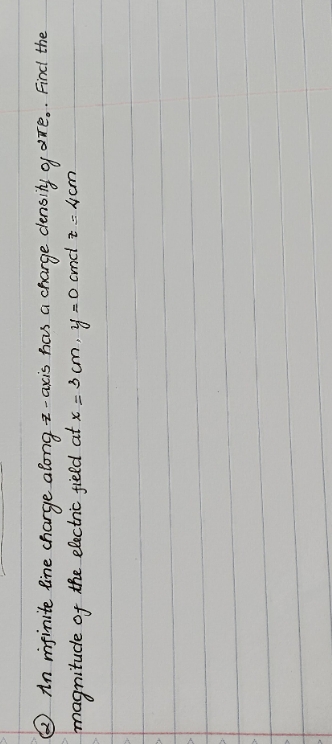 ② An infinite line charge along z-axis has a charge density of 2πε₀. Find the
magnitude of the electric field at x = 3 cm, y = 0 and z = 4 cm